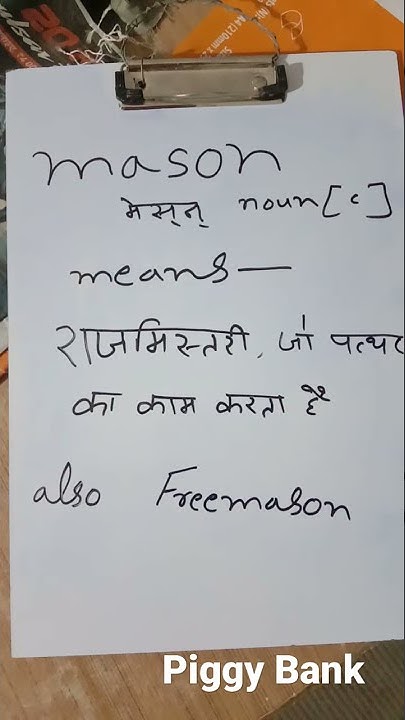 mason
मेसन् noun [c]
means —
राजमिस्तरी, जो पत्थर
का काम करता है
also Freemason
Piggy Bank